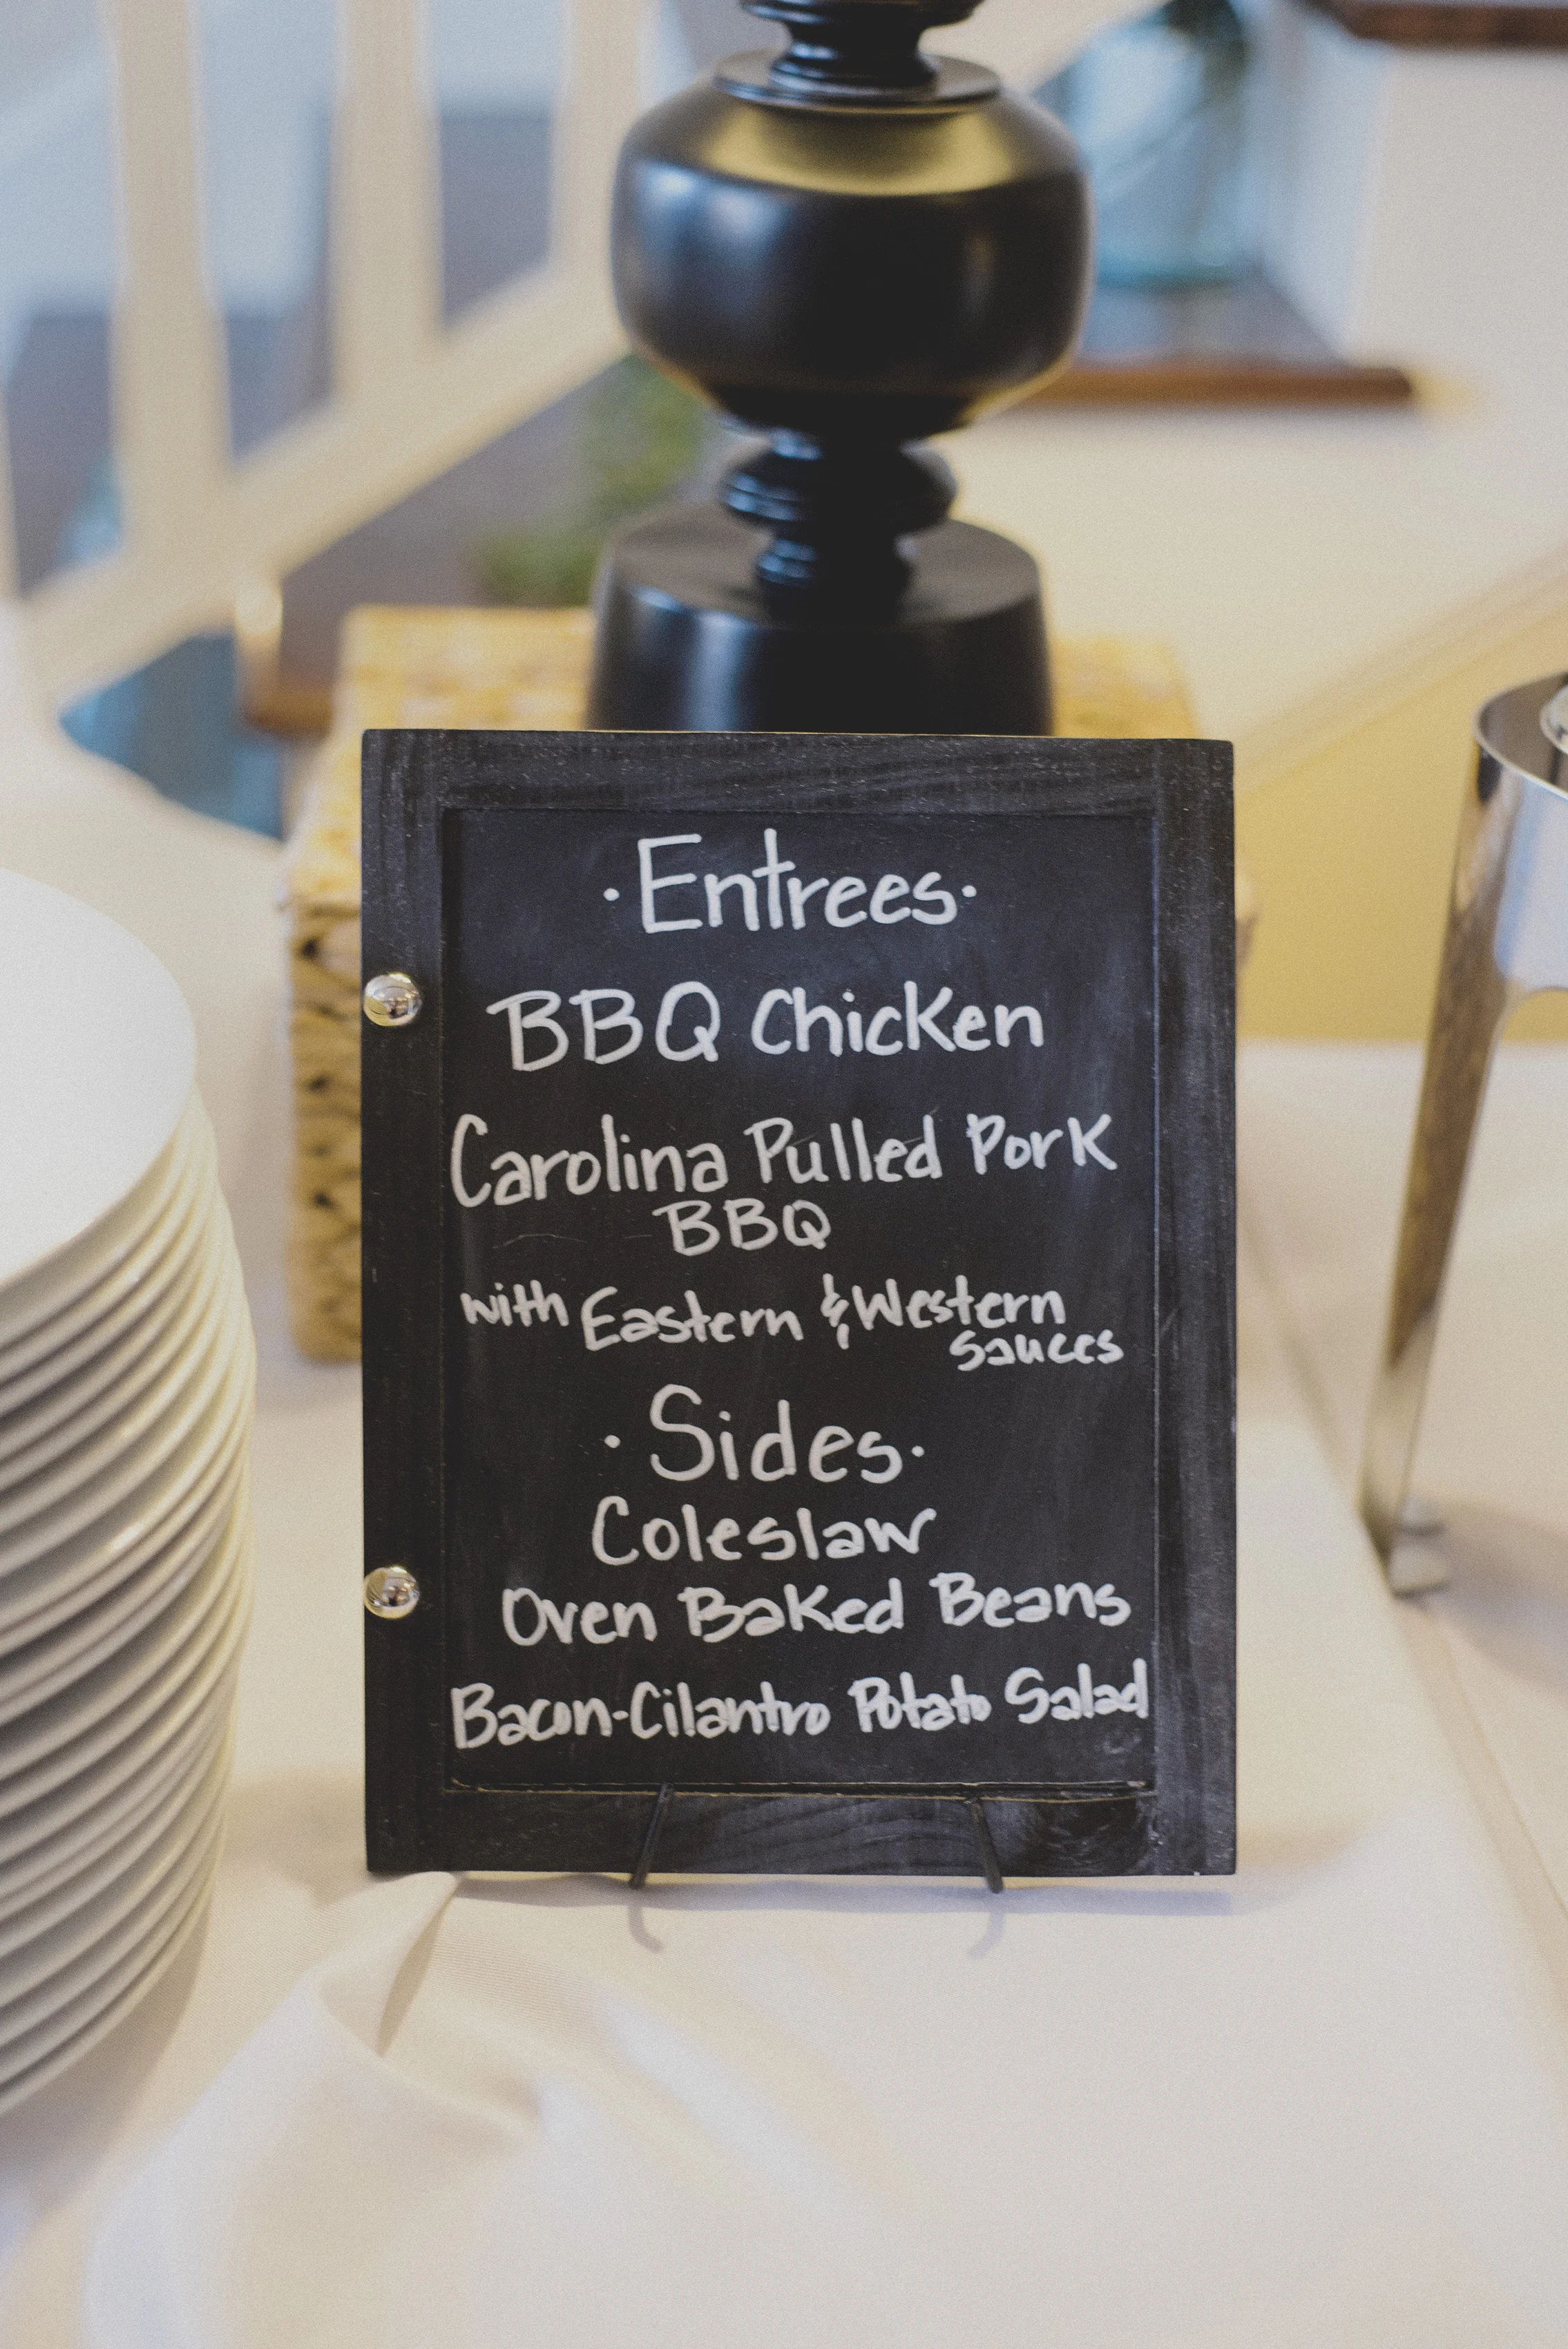 ·Entrees·
BBQ Chicken
Carolina Pulled Pork
BBQ
with Eastern & Western
sauces
·Sides·
Coleslaw
Oven Baked Beans
Bacon-Cilantro Potato Salad